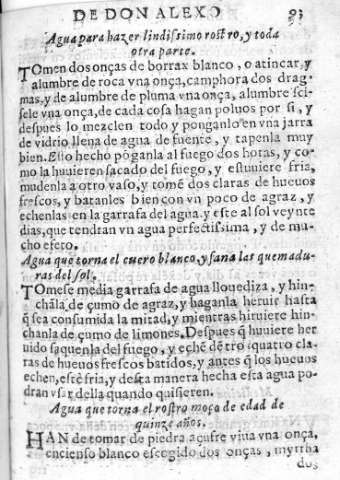 DE DON ALEXO 93
Agua para hazer lindissimo rostro, y toda
otra parte.
TOmen dos onças de borrax blanco, o atincar, y
alumbre de roca vna onça, camphora dos drag-
mas, y de alumbre de pluma vna onça, alumbre sci-
sele vna onça, de cada cosa hagan poluos por si, y
despues lo mezclen todo y ponganlo en vna jarra
de vidrio llena de agua de fuente, y tapenla muy
bien. Esto hecho pōganla al fuego dos horas, y co-
mo la huuieren sacado del fuego, y estuuiere fria,
mudenla a otro vaso, y tomē dos claras de hueuos
frescos, y batanles bien con vn poco de agraz, y
echenlas en la garrafa del agua y este al sol veynte
dias, que tendran vn agua perfectissima, y de mu-
cho efeto.
Agua que torna el cuero blanco, y sana las quemadu-
ras del sol.
TOmese media garrafa de agua llouediza, y hin-
chāla de çumo de agraz, y haganla heruir hasta
q̄ sea consumida la mitad, y mientras hiruiere hin-
chanla de çumo de limones. Despues q̄ huuiere her
uido saquenla del fuego, y echē dētro quatro claras
de hueuos frescos batidos, y antes q̄ los hueuos
echen, estē fria, y desta manera hecha esta agua po-
dran vsar della quando quisieren.
Agua que torna el rostro moço de edad de
quinze años.
HAN de tomar de piedra açufre viua vna onça,
encienso blanco escogido dos onças, myrrha
dos